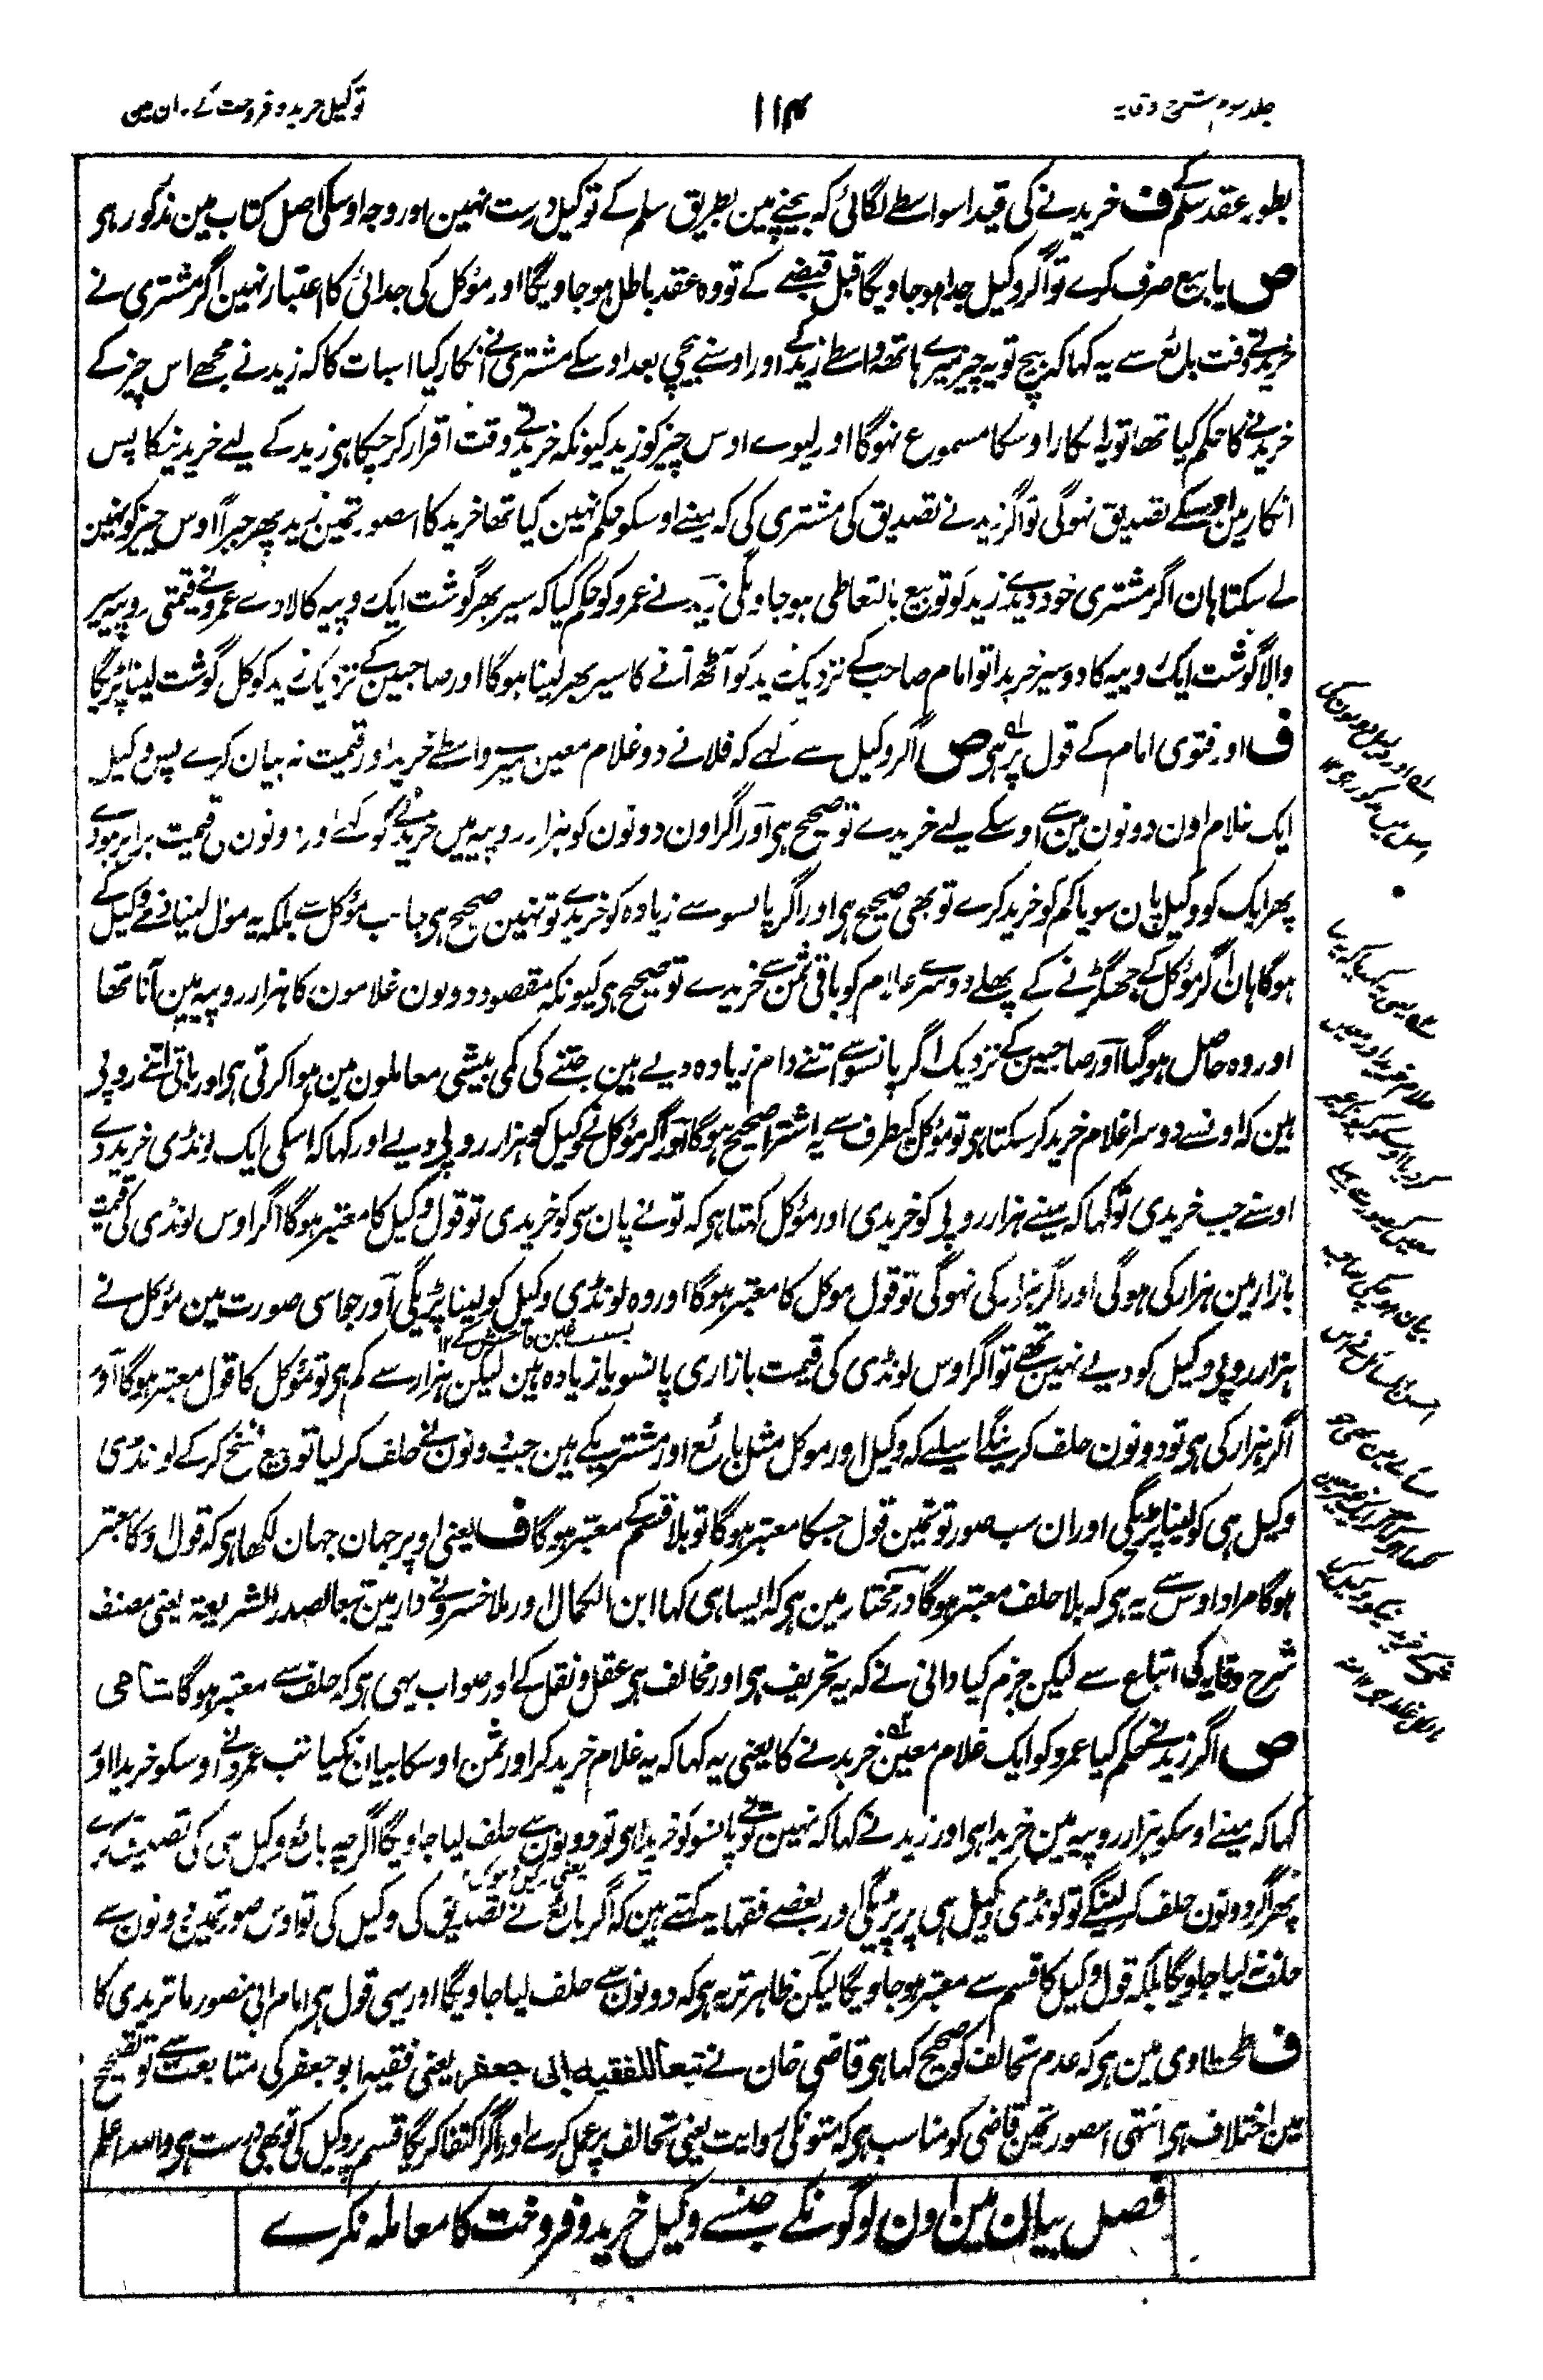 جلد سوم شرح وقایہ
۱۱۴
توکیل خرید و فروخت کے بیان مین
بطور عقد سلم کے ف خریدنے کی قید اسواسطے لگائی کہ بیچنے مین بطریق سلم کے توکیل درست نہین اور وجہ اوسکی اصل کتاب مین مذکور ہی
ص یا بیع صرف کرے تو اگر وکیل جدا ہو جاویگا قبل قبضے کے تو وہ عقد باطل ہو جاویگا اور مؤکل کی جدائی کا اعتبار نہین اگر مشتری نے
خریدتے وقت بائع سے یہ کہا کہ بیچ تو یہ چیز میرے ہاتھ واسطے زید کے اور اوسنے بیچی بعد اوسکے مشتری نے انکار کیا اسبات کا کہ زید نے مجھے اس چیز کے
خریدنے کا حکم کیا تھا تو یہ انکار اوسکا مسموع نہوگا اور لیوے اوس چیز کو زید کیونکہ خریدتے وقت اقرار کر چکا ہی زید کے لیے خریدنیکا پس
انکار مین اوسکے تصدیق نہوگی تو اگر زید نے تصدیق کی مشتری کی کہ مینے اوسکو حکم نہین کیا تھا خرید کا اسصورتمین زید پھر جبراً اوس چیز کو نہین
لے سکتا ہان اگر مشتری خود دیدے زید کو تو بیع بالتعاطی ہو جاویگی زید نے عمرو کو حکم کیا کہ سیر بھر گوشت ایک روپیہ کا لادے عمرو نے قیمتی روپیہ سیر
والا گوشت ایک روپیہ کا دو سیر خریدا تو امام صاحب کے نزدیک زید کو آٹھ آنے کا سیر بھر لینا ہوگا اور صاحبین کے نزدیک زید کو کل گوشت لینا پڑیگا
ف اور فتوی امام کے قول پر ہی ص اگر وکیل سے کہے کہ فلانے دو غلام معین میرے واسطے خرید اور قیمت نہ بیان کرے پس وکیل
ایک غلام اون دونون مین سے اوسکے لیے خریدے تو صحیح ہی اور اگر اون دونون کو ہزار روپیہ مین خریدنے کو کہے اور دونون کی قیمت برابر ہووے
پھر ایک کو وکیل پان سو یا کم کو خرید کرے تو بھی صحیح ہی اور اگر پانسو سے زیادہ کو خریدے تو نہین صحیح ہی جانب مؤکل سے بلکہ یہ مول لینا ذمے وکیل کے
ہوگا ہان اگر مؤکل کے جھگڑنے کے پہلے دوسرے غلام کو باقی ثمن سے خریدے تو صحیح ہی کیونکہ مقصود دونون غلامون کا ہزار روپیہ مین آنا تھا
اور وہ حاصل ہوگیا اور صاحبین کے نزدیک اگر پانسو سے اتنے دام زیادہ دیے ہین جتنے کی کمی بیشی معاملون مین ہوا کرتی ہی اور باقی اتنے روپی
ہین کہ اونسے دوسرا غلام خرید کر سکتا ہی تو مؤکل کیطرف سے یہ اشترا صحیح ہوگا اور اگر مؤکل نے وکیل کو ہزار روپی دیے اور کہا کہ اسکی ایک لونڈی خرید دے
اوسنے جب خریدی تو کہا کہ مینے ہزار روپی کو خریدی اور مؤکل کہتا ہی کہ تو نے پان سی کو خریدی تو قول وکیل کا معتبر ہوگا اگر اوس لونڈی کی قیمت
بازار مین ہزار کی ہوگی اور اگر ہزار کی نہوگی تو قول موکل کا معتبر ہوگا اور وہ لونڈی وکیل کو لینا پڑیگی اور جو اسی صورت مین مؤکل نے
بسبب غبن فاحش کے ۱۲
ہزار روپی وکیل کو دیے نہین تھے تو اگر اوس لونڈی کی قیمت بازاری پانسو یا زیادہ ہین لیکن ہزار سے کم ہی تو مؤکل کا قول معتبر ہوگا اور
اگر ہزار کی ہی تو دونون حلف کرینگے اسیلے کہ وکیل اور موکل مثل بائع اور مشتری کے ہین جب دونون نے حلف کر لیا تو بیع فسخ کر کے لونڈی
وکیل ہی کو لینا پڑیگی اور ان سب صورتونمین قول جسکا معتبر ہوگا تو بلا قسم کے معتبر ہوگا ف یعنی اوپر جہان جہان لکھا ہی کہ قول وسکا معتبر
ہوگا مراد اوس سے یہ ہی کہ بلا حلف معتبر ہوگا درمختار مین ہی کہ ایسا ہی کہا ابن الکمال اور ملا خسرو نے درر مین تبعا لصدر الشریعۃ یعنی مصنف
شرح وقایہ کی اتباع سے لیکن جزم کیا وانی نے کہ یہ تحریف ہی اور مخالف ہی عقل و نقل کے اور صواب یہی ہی کہ حلف سے معتبر ہوگا شامی
ص اگر زید نے حکم کیا عمرو کو ایک غلام معین خریدنے کا یعنی یہ کہا کہ یہ غلام خرید کر اور ثمن اوسکا بیان نکیا تب عمرو نے اوسکو خریدا اور
کہا کہ مینے اوسکو ہزار روپیہ مین خریدا ہی اور زید نے کہا کہ نہین تو نے پانسو کو خریدا ہی تو دونون سے حلف لیا جاویگا اگرچہ بائع وکیل ہی کی تصدیق کرے
پھر اگر دونون حلف کر لینگے تو لونڈی وکیل ہی پر پڑیگی اور بعضے فقہا یہ کہتے ہین کہ اگر بائع نے تصدیق کی وکیل کی تو اوس صورتمین دونون سے
حلف نہ لیا جاویگا بلکہ قول وکیل کا قسم سے معتبر ہو جاویگا لیکن ظاہر تر یہ ہی کہ دونون سے حلف لیا جاویگا اور یہی قول ہی امام ابی منصور ماتریدی کا
ف طحطاوی مین ہی کہ عدم تحالف کو صحیح کہا ہی قاضی خان نے تبعا للفقیہ ابی جعفر یعنی فقیہ ابو جعفر کی متابعت سے تو تصحیح
مین اختلاف ہی انتہی اسصورتمین قاضی کو مناسب ہی کہ متون کی روایت یعنی تحالف پر عمل کرے اور اگر اکتفا کریگا قسم پر وکیل کی تو بھی درست ہی واللہ اعلم
فصل بیان مین اون لوگونکے جنسے وکیل خرید و فروخت کا معاملہ نکرے